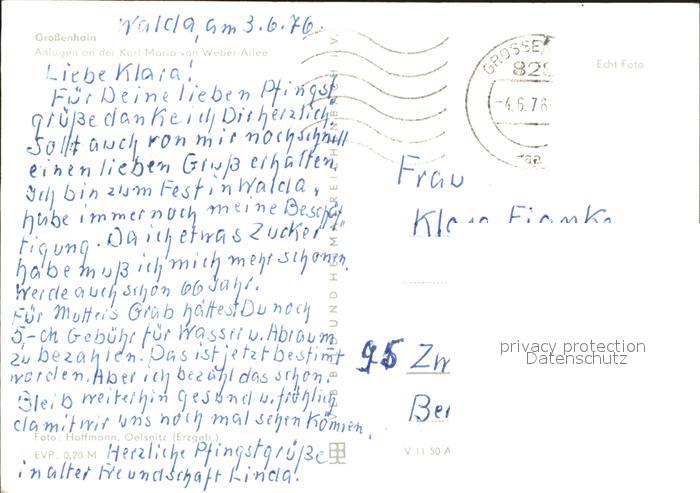 Walda, am 3.6.76.
Großenhain
Anlagen an der Karl-Maria-von-Weber-Allee
Echt Foto
Liebe Klara!
Für Deine lieben Pfingst
grüße danke ich Dir herzlich.
Sollt auch von mir noch schnell
einen lieben Gruß erhalten.
Ich bin zum Fest in Walda,
habe immer noch meine Beschäf
tigung. Da ich etwas Zucker
habe muß ich mich mehr schonen.
Werde auch schon 66 Jahr.
Für Mutters Grab hättest Du noch
5,- ch Gebühr für Wasser u. Abraum
zu bezahlen. Das ist jetzt bestimt
worden. Aber ich bezahl das schon.
Bleib weiterhin gesund u. fröhlich
damit wir uns noch mal sehen können.
Foto: Hoffmann, Oelsnitz (Erzgeb.)
Herzliche Pfingstgrüße
EVP: 0,20 M
in alter Freundschaft Linda.
VEB BILD UND HEIMAT REICHENBACH I. V.
V 11 50 A
GROSSE
828
-4.6.76
Frau
95 Zw
Ber
privacy protection
Datenschutz